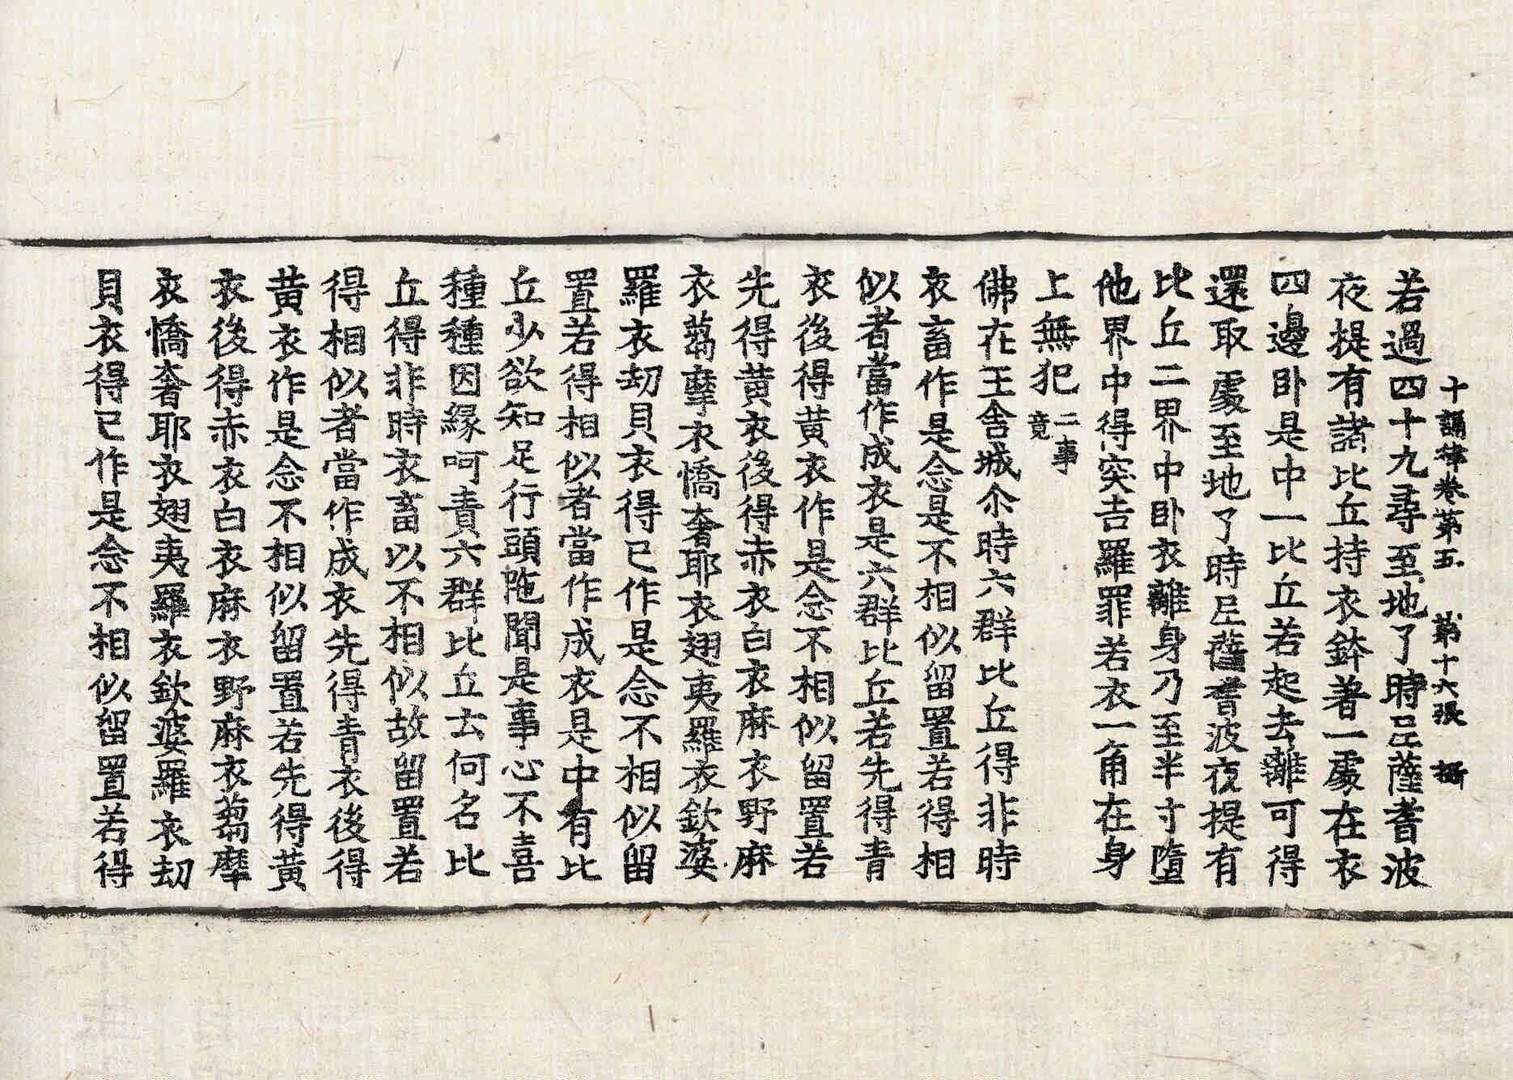 十誦律卷第五　第十六張　搔
若過四十九尋至地了時尼薩耆波
夜提有諸比丘持衣鉢著一處在衣
四邊卧是中一比丘若起去離可得
還取處至地了時尼薩耆波夜提有
比丘二界中卧衣離身乃至半寸墮
他界中得突吉羅罪若衣一角在身
上無犯二事竟
佛在王舍城尒時六群比丘得非時
衣畜作是念是不相似留置若得相
似者當作成衣是六群比丘若先得青
衣後得黃衣作是念不相似留置若
先得黃衣後得赤衣白衣麻衣野麻
衣芻麾衣憍奢耶衣翅夷羅衣欽婆
羅衣刧貝衣得已作是念不相似留
置若得相似者當作成衣是中有比
丘少欲知足行頭陁聞是事心不喜
種種因緣呵責六群比丘云何名比
丘得非時衣畜以不相似故留置若
得相似者當作成衣先得青衣後得
黃衣作是念不相似留置若先得黃
衣後得赤衣白衣麻衣野麻衣芻麾
衣憍奢耶衣翅夷羅衣欽婆羅衣刧
貝衣得已作是念不相似留置若得